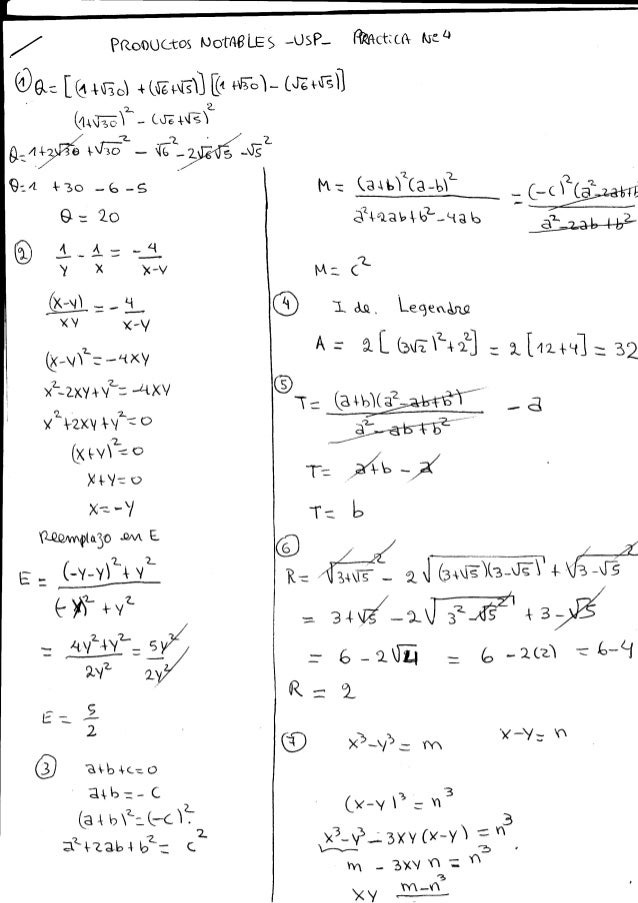 PRODUCTOS NOTABLES -USP- PRACTICA Nº 4
① Q = [(1+√30) + (√6+√5)] [(1+√30) - (√6+√5)]
(1+√30)² - (√6+√5)²
Q = 1+2√30 + √30² - √6² - 2√6√5 - √5²
Q = 1 + 30 - 6 - 5
Q = 20
② 1/y - 1/x = -4/(x-y)
(x-y)/xy = -4/(x-y)
(x-y)² = -4xy
x²-2xy+y² = -4xy
x²+2xy+y² = 0
(x+y)² = 0
x+y = 0
x = -y
Reemplazo en E
E = ((-y-y)²+y²)/((-y)²+y²)
= (4y²+y²)/2y² = 5y²/2y²
E = 5/2
③ a+b+c=0
a+b = -c
(a+b)² = (-c)²
a²+2ab+b² = c²
M = (a+b)²(a-b)²/(a²+2ab+b²-4ab) = (-c)²(a²-2ab+b/(a²-2ab+b²)
M = c²
④ I de. Legendre
A = 2[(3√2)²+2²] = 2[12+4] = 32
⑤ T = (a+b)(a²-ab+b²)/(a²-ab+b²) - a
T = a+b-a
T = b
⑥
R = √3+√5² - 2√(3+√5)(3-√5) + √3-√5²
= 3+√5 - 2√3²-√5² + 3-√5
= 6 - 2√4 = 6 - 2(2) = 6-4
R = 2
⑦ x³-y³ = m x-y = n
(x-y)³ = n³
x³-y³-3xy(x-y) = n³
m - 3xyn = n³
xy m-n³